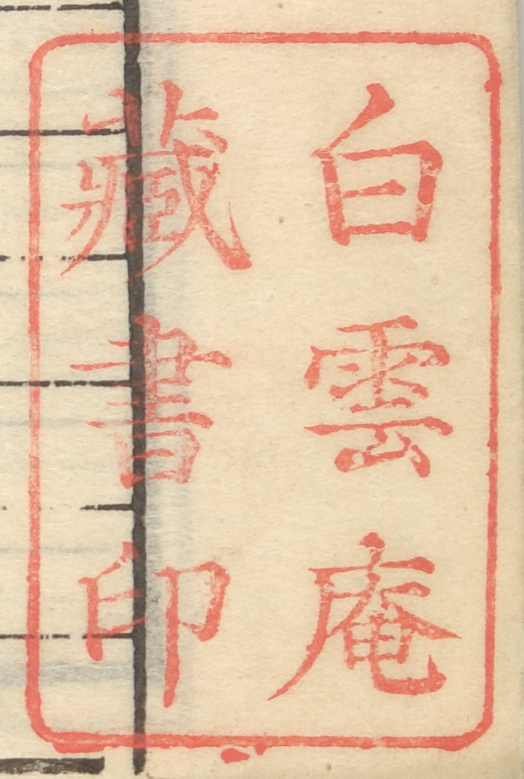 白雲庵
藏書印